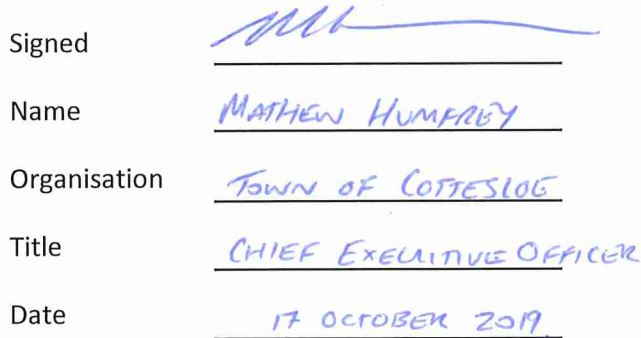 Signed
Name MATHEW HUMFREY
Organisation TOWN OF COTTESLOE
Title CHIEF EXECUTIVE OFFICER
Date 17 OCTOBER 2019